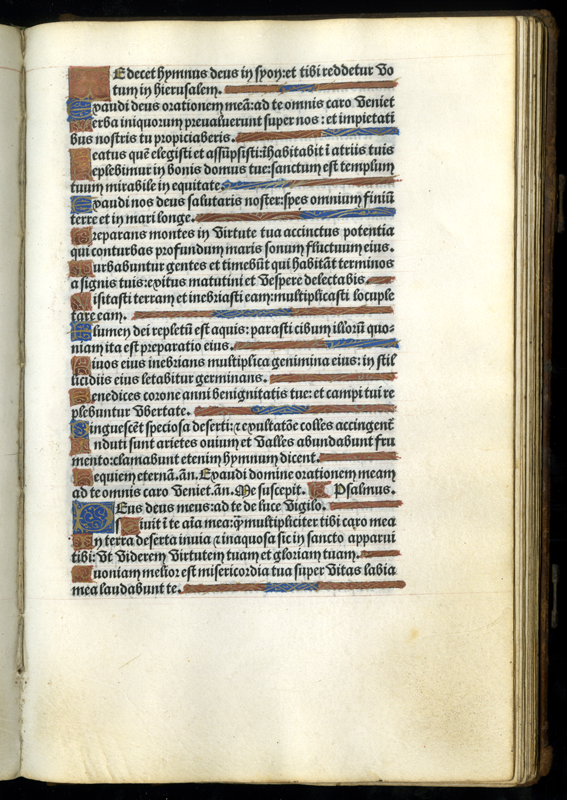 TE decet hymnus deus in syon: et tibi reddetur vo
tum in hierusalem.
Exaudi deus orationem meā: ad te omnis caro veniet
Verba iniquorum preualuerunt super nos: et impietati
bus nostris tu propiciaberis.
Beatus quē elegisti et assūpsisti: īhabitabit ī atriis tuis
Replebimur in bonis domus tue: sanctum est templum
tuum mirabile in equitate.
Exaudi nos deus salutaris noster: spes omnium finiū
terre et in mari longe.
Preparans montes in virtute tua accinctus potentia
qui conturbas profundum maris sonum fluctuum eius.
Turbabuntur gentes et timebūt qui habitāt terminos
a signis tuis: exitus matutini et vespere delectabis.
Visitasti terram et inebriasti eam: multiplicasti locuple
tare eam.
Flumen dei repletū est aquis: parasti cibum illorū quo-
niam ita est preparatio eius.
Riuos eius inebrians multiplica genimina eius: in stil
licidiis eius letabitur germinans.
Benedices corone anni benignitatis tue: et campi tui re
plebuntur vbertate.
Pinguescēt speciosa deserti: ⁊ exultatōe colles accingent̄
Induti sunt arietes ouium et valles abundabunt fru
mento: clamabunt etenim hymnum dicent.
Requiem eternā. an. Exaudi domine orationem meam
ad te omnis caro veniet. an. Me suscepit. Psalmus.
DEus deus meus: ad te de luce vigilo.
Sitiuit ī te aīa mea: q̄ multipliciter tibi caro mea
In terra deserta inuia ⁊ inaquosa sic in sancto apparui
tibi: vt viderem virtutem tuam et gloriam tuam.
Quoniam melior est misericordia tua super vitas labia
mea laudabunt te.